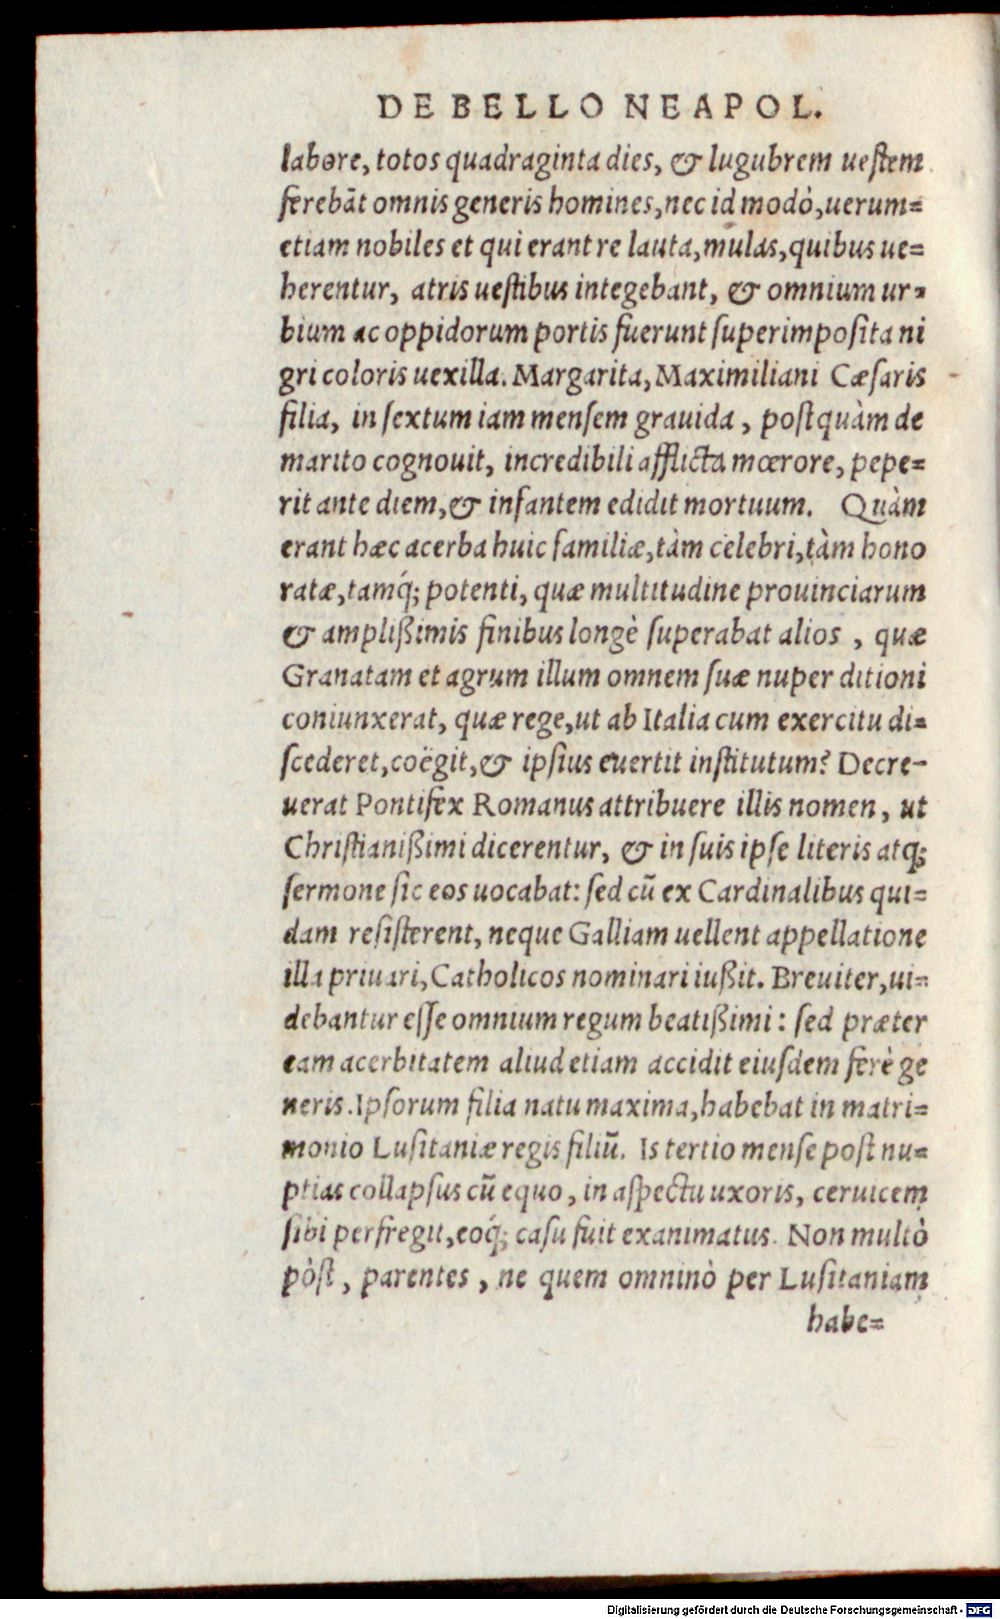 DE BELLO NEAPOL.
labore, totos quadraginta dies, & lugubrem uestem
ferebāt omnis generis homines, nec id modò, uerum=
etiam nobiles et qui erant re lauta, mulas, quibus ue=
herentur, atris uestibus integebant, & omnium ur=
bium ac oppidorum portis fuerunt superimposita ni
gri coloris uexilla. Margarita, Maximiliani Cæsaris
filia, in sextum iam mensem grauida, postquàm de
marito cognouit, incredibili afflicta mœrore, pepe=
rit ante diem, & infantem edidit mortuum. Quàm
erant hæc acerba huic familiæ, tàm celebri, tàm hono
ratæ, tamq́; potenti, quæ multitudine prouinciarum
& amplißimis finibus longè superabat alios, quæ
Granatam et agrum illum omnem suæ nuper ditioni
coniunxerat, quæ rege, ut ab Italia cum exercitu di=
scederet, coëgit, & ipsius euertit institutum? Decre-
uerat Pontifex Romanus attribuere illis nomen, ut
Christianißimi dicerentur, & in suis ipse literis atq;
sermone sic eos uocabat: sed cū ex Cardinalibus qui=
dam resisterent, neque Galliam uellent appellatione
illa priuari, Catholicos nominari iußit. Breuiter, ui=
debantur esse omnium regum beatißimi: sed præter
eam acerbitatem aliud etiam accidit eiusdem ferè ge
neris. Ipsorum filia natu maxima, habebat in matri=
monio Lusitaniæ regis filiū. Is tertio mense post nu=
ptias collapsus cū equo, in aspectu uxoris, ceruicem
sibi perfregit, eoq́; casu fuit exanimatus. Non multò
pòst, parentes, ne quem omninò per Lusitaniam
habe=
Digitalisierung gefördert durch die Deutsche Forschungsgemeinschaft - DFG